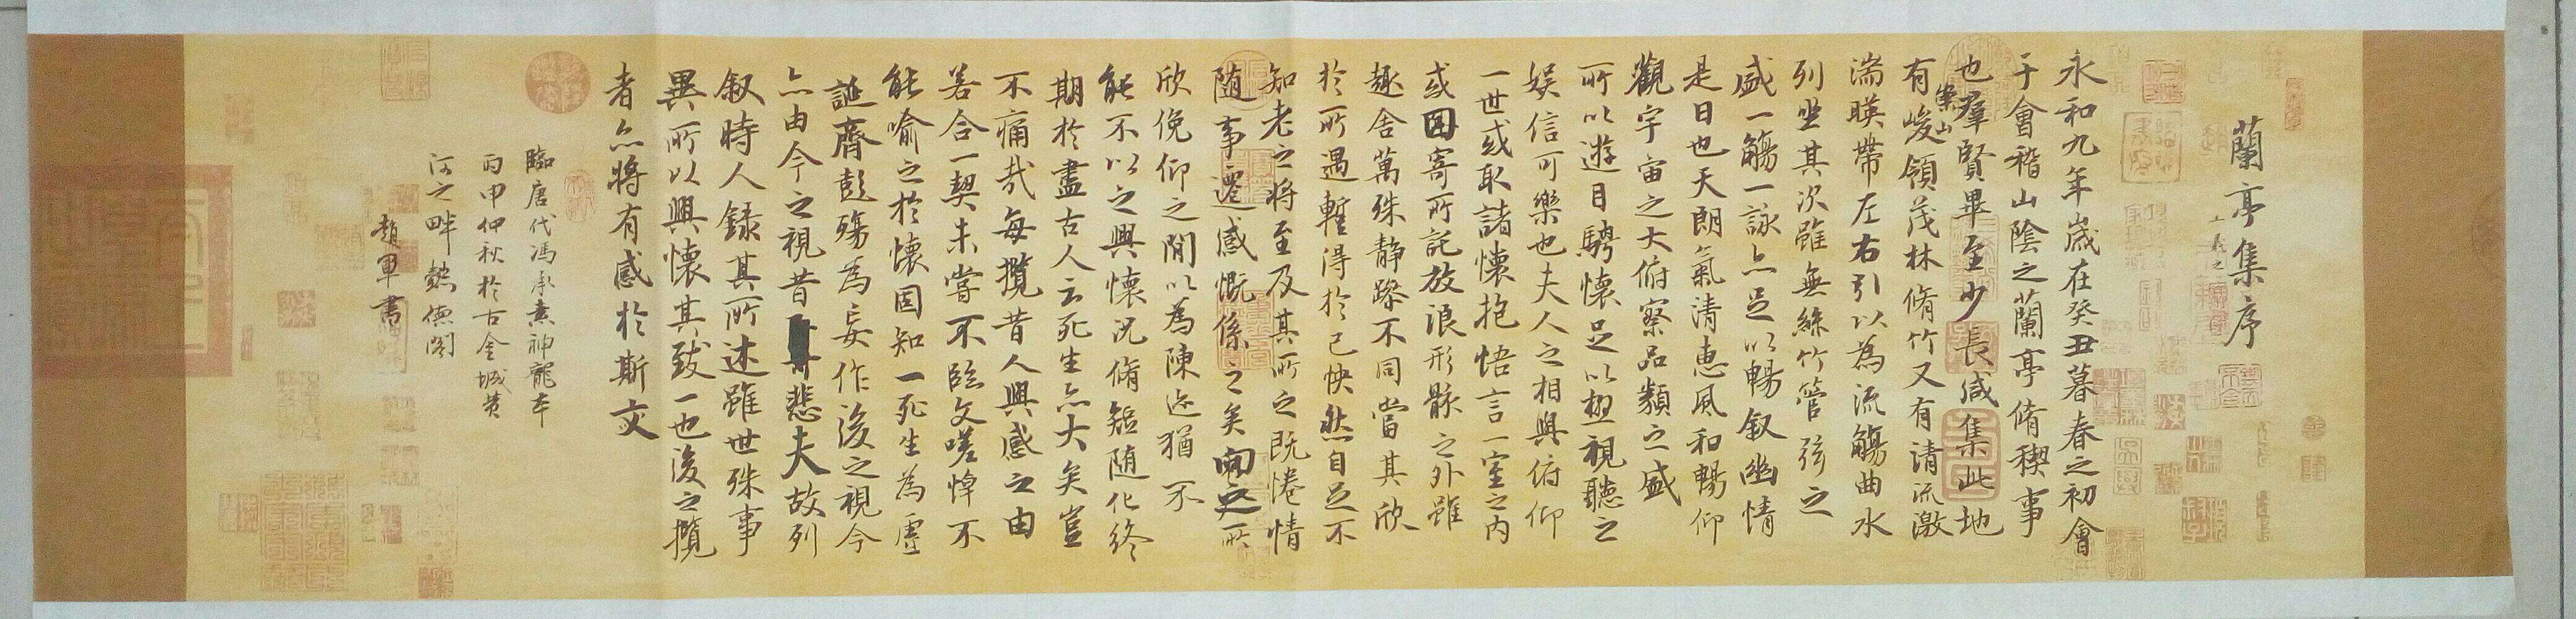 蘭亭集序
王羲之
永和九年歲在癸丑暮春之初會
于會稽山陰之蘭亭脩稧事
也羣賢畢至少長咸集此地
有崇山峻領茂林脩竹又有清流激
湍暎帶左右引以為流觴曲水
列坐其次雖無絲竹管弦之
盛一觴一詠亦足以暢敘幽情
是日也天朗氣清惠風和暢仰
觀宇宙之大俯察品類之盛
所以遊目騁懷足以極視聽之
娛信可樂也夫人之相與俯仰
一世或取諸懷抱悟言一室之內
或因寄所託放浪形骸之外雖
趣舍萬殊靜躁不同當其欣
於所遇暫得於己快然自足不
知老之將至及其所之既惓情
隨事遷感慨係之矣向之所
欣俛仰之閒以為陳迹猶不
能不以之興懷況脩短隨化終
期於盡古人云死生亦大矣豈
不痛哉每攬昔人興感之由
若合一契未嘗不臨文嗟悼不
能喻之於懷固知一死生為虛
誕齊彭殤為妄作後之視今
亦由今之視昔悲夫故列
敘時人錄其所述雖世殊事
異所以興懷其致一也後之攬
者亦將有感於斯文
臨唐代馮承素神龍本
丙申仲秋於古金城黃
河之畔懿德閣
趙軍書